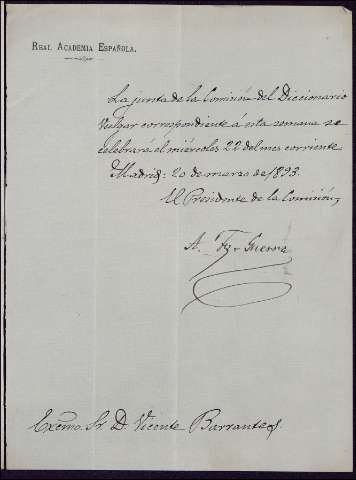 REAL ACADEMIA ESPAÑOLA.
La junta de la Comisión del Diccionario
Vulgar correspondiente á esta semana se
celebrará el miércoles 22 del mes corriente
Madrid: 20 de marzo de 1893.
El Presidente de la Comisión,
A. Fz-Guerra
Excmo. Sr. D. Vicente Barrantes.